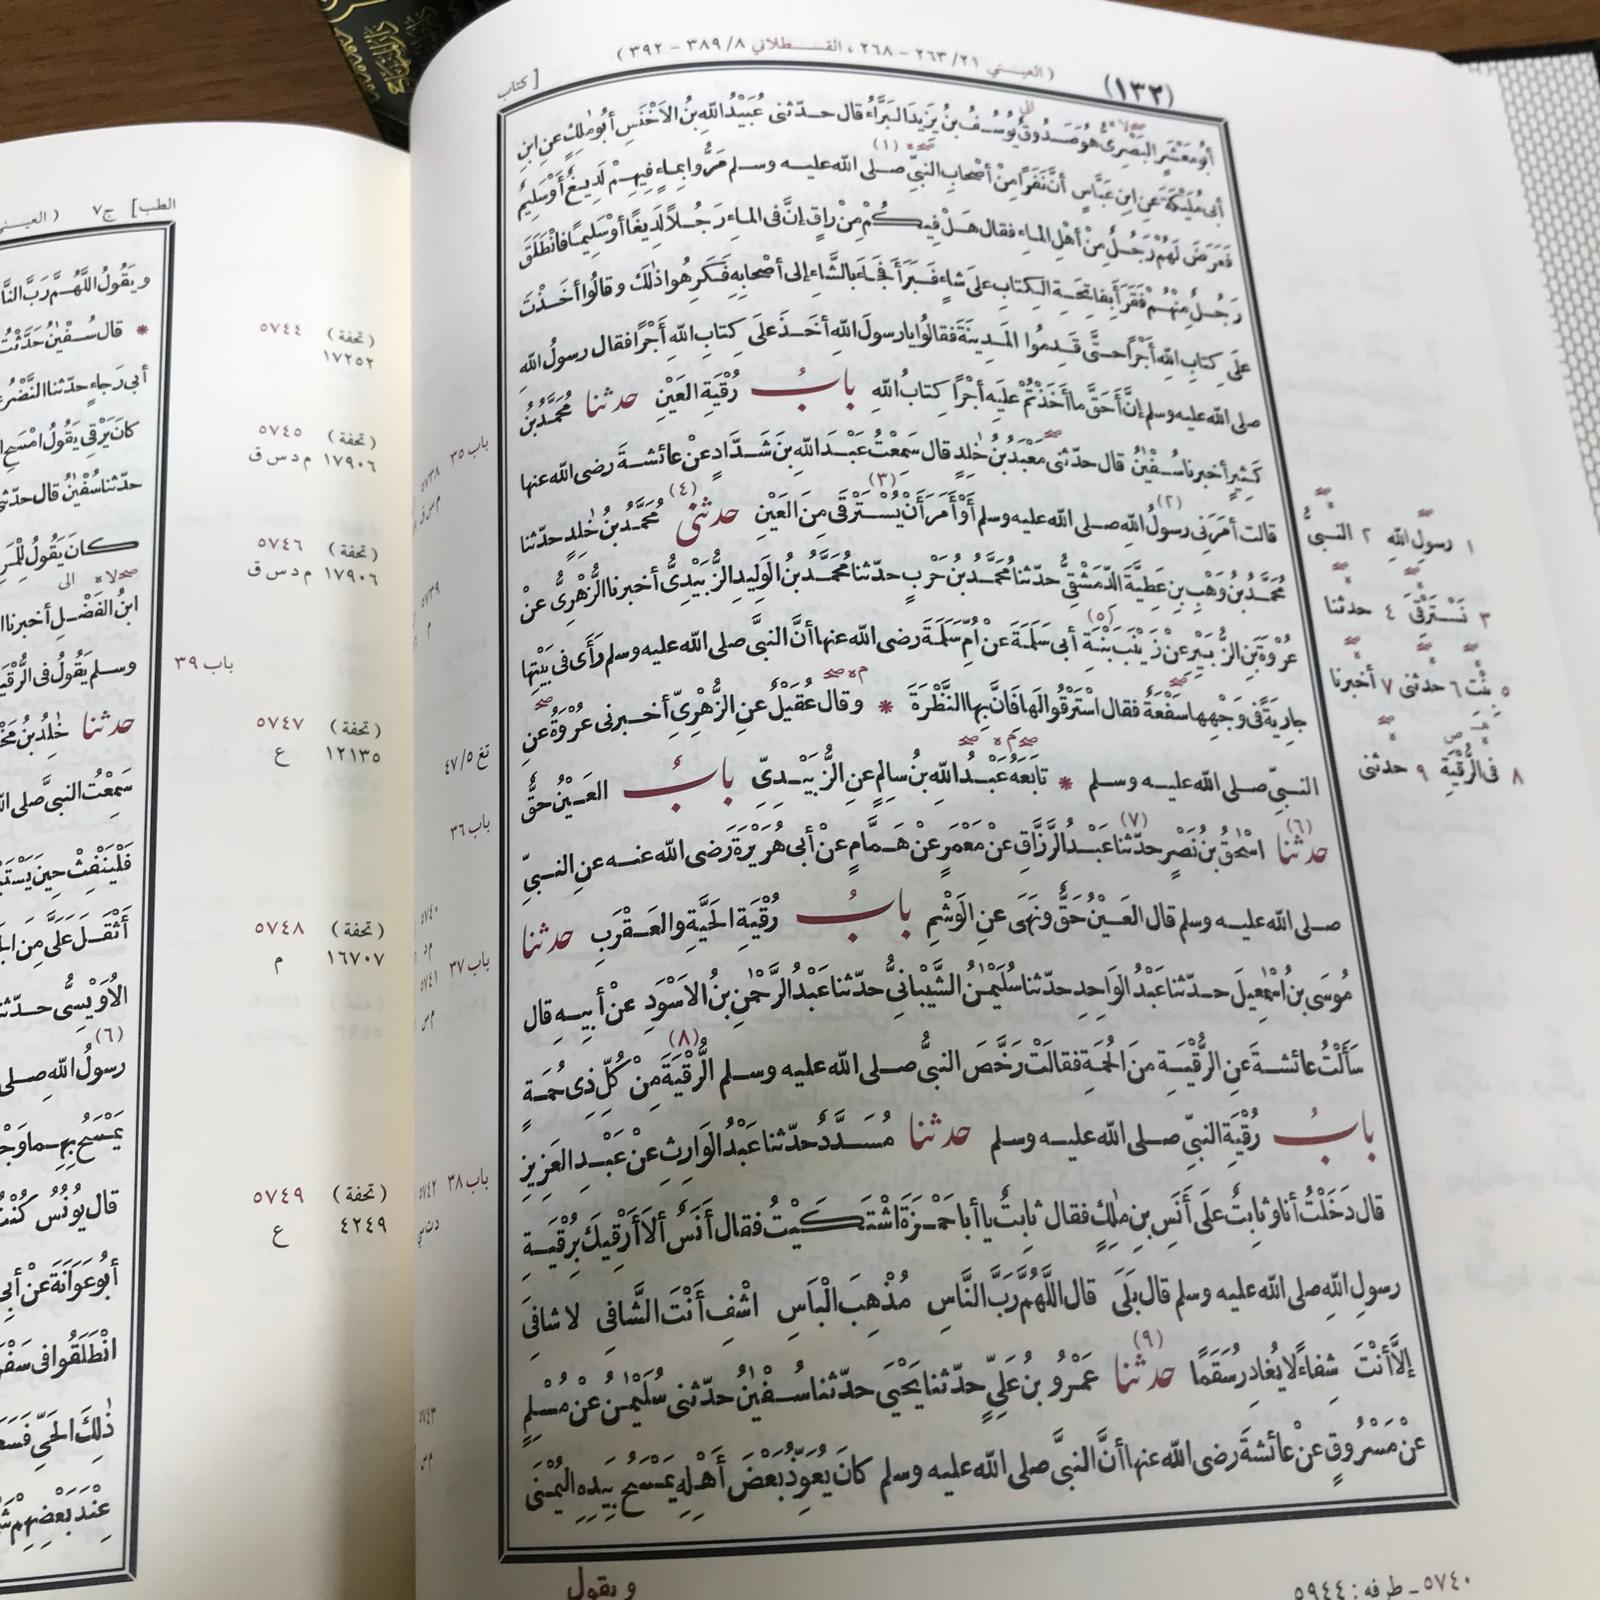 (١٣٢)
(العيني ٢١/ ٢٦٣ - ٢٦٨، القسطلاني ٨/ ٣٨٩ - ٣٩٢)
[كتاب
أَبُو مَعْشَرٍ البَصْرِىُّ هُوَ صَدُوقٌ يُوسُفُ بنُ يَزِيدَ البَرَّاءُ قال حدّثنى عُبَيْدُ اللهِ بنُ الاَخْنَسِ أَبُو مٰلِكٍ عن ابنِ
أبى مُلَيْكَةَ عنِ ابنِ عَبَّاسٍ أنَّ نَفَرًا مِنْ أصْحابِ النبيِّ صلى الله عليه وسلم (١) مَرُّوا بِماءٍ فِيهِمْ لَدِيغٌ أوْ سَلِيمٌ
فَعَرَضَ لَهُمْ رَجُلٌ مِنْ أهْلِ الماءِ فقال هَلْ فِيكُمْ مِنْ راقٍ إنَّ فى الماءِ رَجُلاً لَدِيغًا أوْ سَلِيمًا فانْطَلَقَ
رَجُلٌ مِنْهُمْ فَقَرَأَ بِفاتِحَةِ الكِتابِ علَى شاءٍ فَبَرَأَ فَجاءَ بالشَّاءِ إلى أصْحابِهِ فَكَرِهُوا ذٰلكَ وقالُوا أخَذْتَ
علَى كِتابِ اللهِ أجْرًا حتَّى قَدِمُوا المَدِينَةَ فقالُوا يارسولَ اللهِ أخَذَ علَى كِتابِ اللهِ أجْرًا فقال رسولُ اللهِ
صلى الله عليه وسلم إنَّ أحَقَّ ما أخَذْتُمْ عليهِ أجْرًا كِتابُ اللهِ بابُ رُقْيَةِ العَيْنِ حدثنا مُحَمَّدُ بنُ
كَثِيرٍ أخبرنا سُفْيٰنُ قال حدّثنى مَعْبَدُ بنُ خٰلِدٍ قال سَمِعْتُ عَبْدَ اللهِ بنَ شَدَّادٍ عنْ عائشةَ رضى الله عنها
قالت أمَرَنِى رسولُ اللهِ (٢) صلى الله عليه وسلم أوْ أمَرَ أنْ يُسْتَرْقَى (٣) مِنَ العَيْنِ حدثنى (٤) مُحَمَّدُ بنُ خٰلِدٍ حدّثنا
مُحَمَّدُ بنُ وَهْبِ بنِ عَطِيَّةَ الدِّمَشْقِىُّ حدّثنا مُحَمَّدُ بنُ حَرْبٍ حدّثنا مُحَمَّدُ بنُ الوَلِيدِ الزُّبَيْدِىُّ أخبرنا الزُّهْرِىُّ عنْ
عُرْوَةَ بنِ الزُّبَيْرِ عنْ زَيْنَبَ بْنَةِ (٥) أبى سَلَمَةَ عنْ اُمِّ سَلَمَةَ رضى الله عنها أنَّ النبىَّ صلى الله عليه وسلم رَأَى فى بَيْتِها
جارِيَةً فى وَجْهِها سَفْعَةٌ فقال اسْتَرْقُوا لَها فَانَّ بِها النَّظْرَةَ * وقال عُقَيْلٌ عنِ الزُّهْرِىِّ أخبرنى عُرْوَةُ عنِ
النبىِّ صلى الله عليه وسلم * تابَعَهُ عَبْدُ اللهِ بنُ سالِمٍ عنِ الزُّبَيْدِىِّ بابٌ العَيْنُ حَقٌّ
حدثنا (٦) اسْحٰقُ بنُ نَصْرٍ حدّثنا (٧) عَبْدُ الرَّزَّاقِ عنْ مَعْمَرٍ عنْ هَمَّامٍ عنْ أبى هُرَيْرَةَ رضى الله عنه عنِ النبىِّ
صلى الله عليه وسلم قال العَيْنُ حَقٌّ ونَهَى عنِ الوَشْمِ بابُ رُقْيَةِ الحَيَّةِ والعَقْرَبِ حدثنا
مُوسَى بنُ اسْمٰعِيلَ حدّثنا عَبْدُ الوَاحِدِ حدّثنا سُلَيْمٰنُ الشَّيْبانىُّ حدّثنا عَبْدُ الرَّحْمٰنِ بنُ الاَسْوَدِ عنْ أبيهِ قال
سَأَلْتُ عائشةَ عنِ الرُّقْيَةِ مِنَ الحُمَةِ فقالَتْ رَخَّصَ النبىُّ صلى الله عليه وسلم الرُّقْيَةَ (٨) مِنْ كُلِّ ذِى حُمَةٍ
بابُ رُقْيَةِ النبىِّ صلى الله عليه وسلم حدثنا مُسَدَّدٌ حدّثنا عَبْدُ الوَارِثِ عنْ عَبْدِ العَزِيزِ
قال دَخَلْتُ أنا وثابِتٌ علَى أنَسِ بنِ مٰلِكٍ فقال ثابِتٌ يا أبا حَمْزَةَ اشْتَكَيْتُ فقال أنَسٌ ألاَ أرْقِيكَ بِرُقْيَةِ
رسولِ اللهِ صلى الله عليه وسلم قال بَلَى قال اللَّهُمَّ رَبَّ النَّاسِ مُذْهِبَ الْبَاسِ اشْفِ أنْتَ الشَّافِى لا شافِىَ
إلاَّ أنْتَ شِفاءً لايُغادِرُ سَقَمًا حدثنا (٩) عَمْرُو بنُ عَلِىٍّ حدّثنا يَحْيَى حدّثنا سُفْيٰنُ حدّثنى سُلَيْمٰنُ عنْ مُسْلِمٍ
عنْ مَسْرُوقٍ عنْ عائشةَ رضى الله عنها أنَّ النبىَّ صلى الله عليه وسلم كانَ يُعَوِّذُ بَعْضَ أهْلِهِ يَمْسَحُ بِيَدِهِ اليُمْنَى
ويقول
٥٧٤٠ ـ طرفه : ٥٩٤٤
١ رسولِ اللهِ ٢ النبىُّ
٣ نَسْتَرْقِىَ ٤ حدثنا
٥ بِنْتِ ٦ حدثنى ٧ أخبرنا
٨ فى الرُّقْيَةِ ٩ حدثنى
باب ٣٥
٥٧٣٨
٥٧٣٩
م
تغ ٥/ ٤٧
باب ٣٦
٥٧٤٠
باب ٣٧
٥٧٤١
باب ٣٨
٥٧٤٢
٥٧٤٣
الطب] ج٧ (العيني
ويَقُولُ اللَّهُمَّ رَبَّ النَّا
* قال سُفْيٰنُ حَدَّثْتُ
أبى رَجاءٍ حدّثنا النَّضْرُ
كانَ يَرْقِى يَقُولُ امْسَحِ
حدّثنا سُفْيٰنُ قال حدّثنى
كانَ يَقُولُ لِلْمَرِ
ابنُ الفَضْلِ أخبرنا
وسلم يَقُولُ فى الرُّقْيَ
حدثنا خٰلِدُ بنُ مَخْ
سَمِعْتُ النبىَّ صلى الله
فَلْيَنْفِثْ حِينَ يَسْتَيْ
أثْقَلَ علَىَّ مِنَ الجَ
الاُوَيْسِىُّ حدّثنا
(٦)
رسولُ اللهِ صلى
يَمْسَحُ بِهِما وَجْ
قال يُونُسُ كُنْتُ
أبُو عَوَانَةَ عنْ أبِى
انْطَلَقُوا فى سَفْرَ
ذٰلِكَ الحَىِّ فَسَعَ
عِنْدَ بَعْضِهِمْ شَ
٥٧٤٤ (تحفة)
١٧٢٥٢
٥٧٤٥ (تحفة)
١٧٩٠٦ م د س ق
٥٧٤٦ (تحفة)
١٧٩٠٦ م د س ق
باب ٣٩
٥٧٤٧ (تحفة)
١٢١٣٥ ع
٥٧٤٨ (تحفة)
١٦٧٠٧ م
٥٧٤٩ (تحفة)
٤٢٤٩ ع